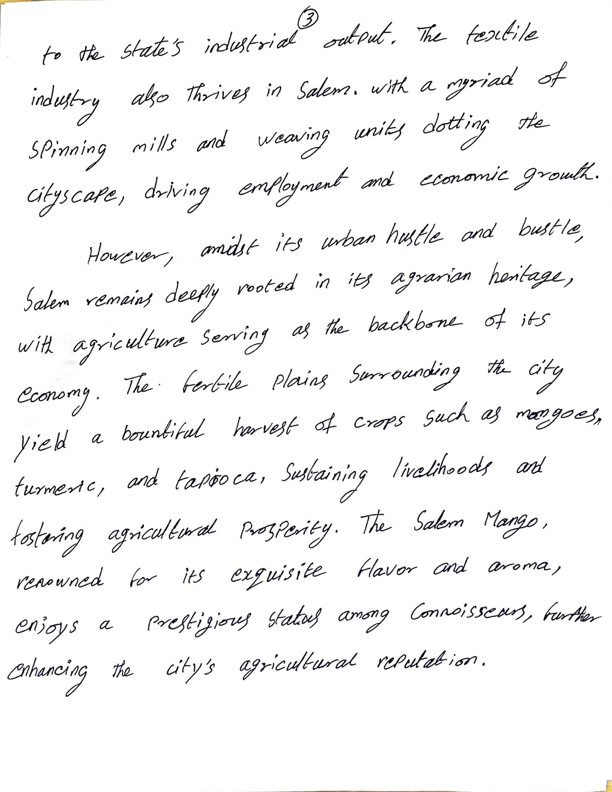 ③
to the state's industrial output. The textile
industry also Thrives in Salem. with a myriad of
Spinning mills and weaving units dotting the
cityscape, driving employment and economic growth.
However, amidst its urban hustle and bustle,
Salem remains deeply rooted in its agrarian heritage,
with agriculture serving as the backbone of its
economy. The fertile Plains Surrounding the city
Yield a bountiful harvest of crops such as mangoes,
turmeric, and tapioca, Sustaining livelihoods and
fostering agricultural Prosperity. The Salem Mango,
renowned for its exquisite flavor and aroma,
enjoys a Prestigious Status among Connoisseurs, further
enhancing the city's agricultural reputation.